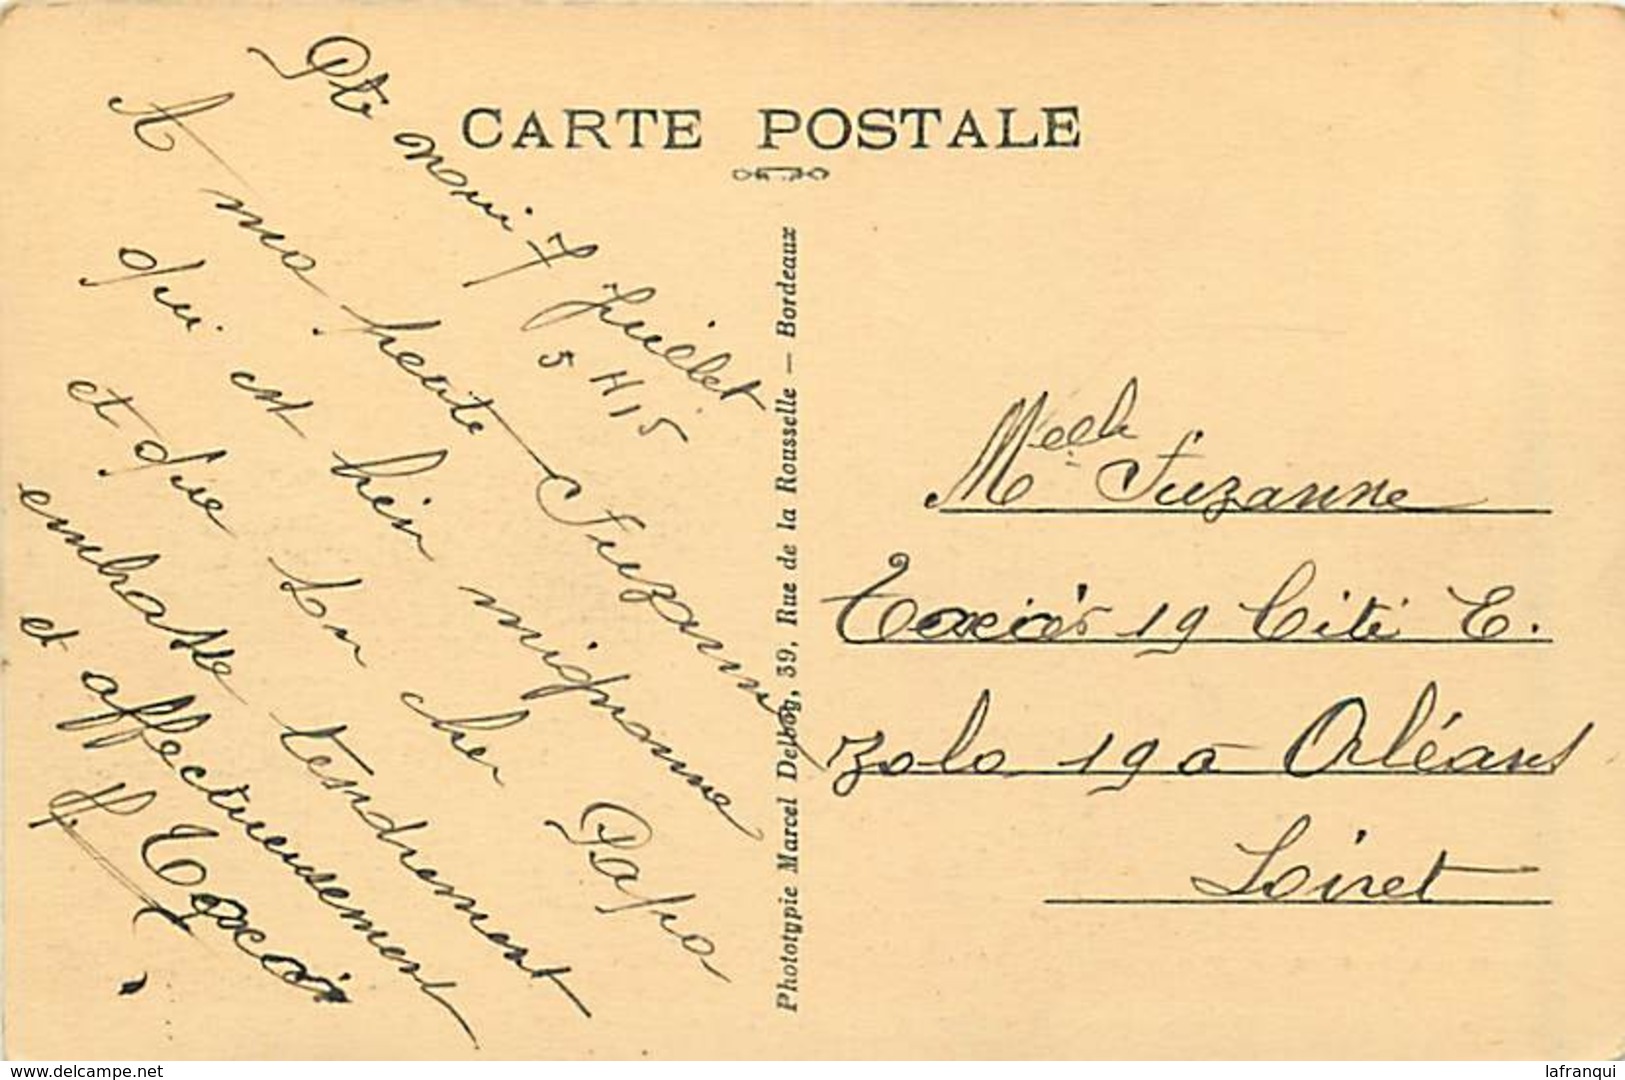 CARTE POSTALE
7 Juillet
A ma petite Suzanne
qui est bien mignonne
et que son cher Papa
embrasse tendrement
et affectueusement
Phototypie Marcel Delboy, 39, Rue de la Rousselle — Bordeaux
Melle Suzanne
19 Cité E.
Zola 19 a Orléans
Loiret
www.delcampe.net
lafranqui